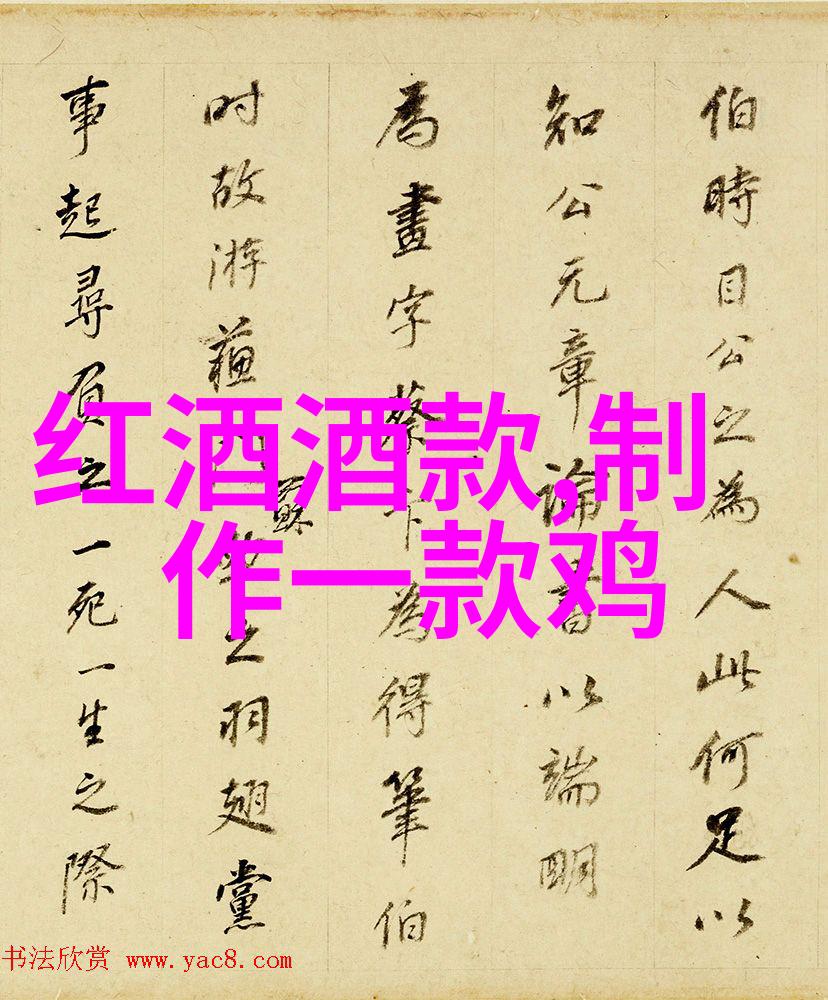 伯時目公之為人此何足以
知公元章論書以端明
為畫字蔡卞為得筆伯
时故游蘓之羽翅黨
事起尋負之一死一生之際
红酒酒款,制
作一款鸡
书法欣赏 www.yac8.com